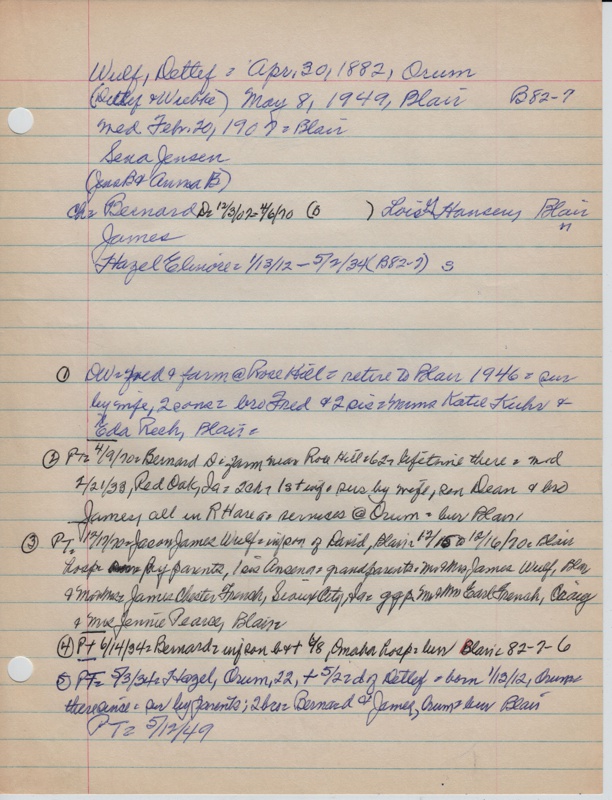 Wulf, Detlef = Apr. 30, 1882, Orum
(Detlef & Wiebke) May 8, 1949, Blair B82-7
med Feb. 20, 1907 = Blair
Sena Jensen
(Jens B & Anna B)
ch= Bernard D= 12/3/07-4/6/70 (B ) Lois Hansen, Blair
James "
Hazel Elinore = 1/13/12 - 5/2/34 (B82-7) s
① DW= & farm @ Rose Hill = retire to Blair 1946 = sur
by wife, 2 sons = bro Fred & 2 sis = Mrms Katie Kuhr &
Eda Rech, Blair =
② PT= 4/9/70 = Bernard D = farm near Rose Hill = 62 = lifetime there = md
2/21/33, Red Oak, Ia = 2ch = 1st inf = sus by wife, son Dean & bro
James, all in R H area = services @ Orum = bur Blair
③ PT= 12/17/70 = Jason James Wulf = inf son of David, Blair = 12/15 to 12/16/70 = Blair
hosp = by parents, 1 sis = grandparents = Mr & Mrs. James Wulf, Blair
& Mr & Mrs James Chester French, Sioux City, Ia = ggp Mr & Mrs Earl French, Craig
& Mrs Jennie Pearce, Blair
④ PT 6/14/34 = Bernard = inf son b & t 6/8, Omaha hosp = bur Blair = 82-7-6
⑤ PT= 5/3/34 = Hazel, Orum, 22, + 5/2 = d of Detlef = born 1/13/12, Orum =
there since = sur by parents; 2 bro = Bernard & James, Orum = bur Blair
PT= 5/12/49